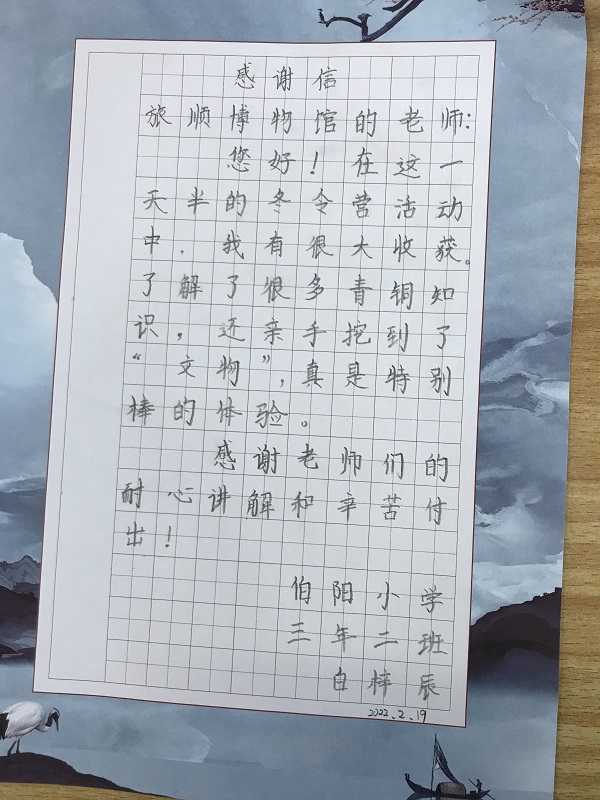 感谢信
旅顺博物馆的老师:
您好!在这一
天半的冬令营活动
中.我有很大收获。
了解了很多青铜知
识,还亲手挖到了
“文物”,真是特别
棒的体验。
感谢老师们的
耐心讲解和辛苦付
出!
伯阳小学
三年二班
白梓辰
2022.2.19